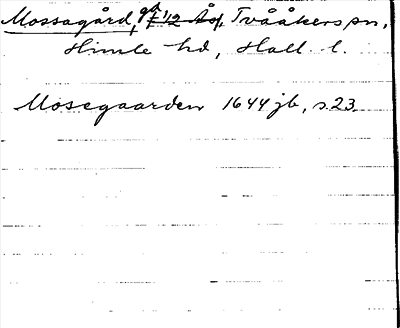 Mossagård, gd Tvååkers sn,
Himle hd, Hall. l.
Mosegaarden 1644 jb, s. 23.